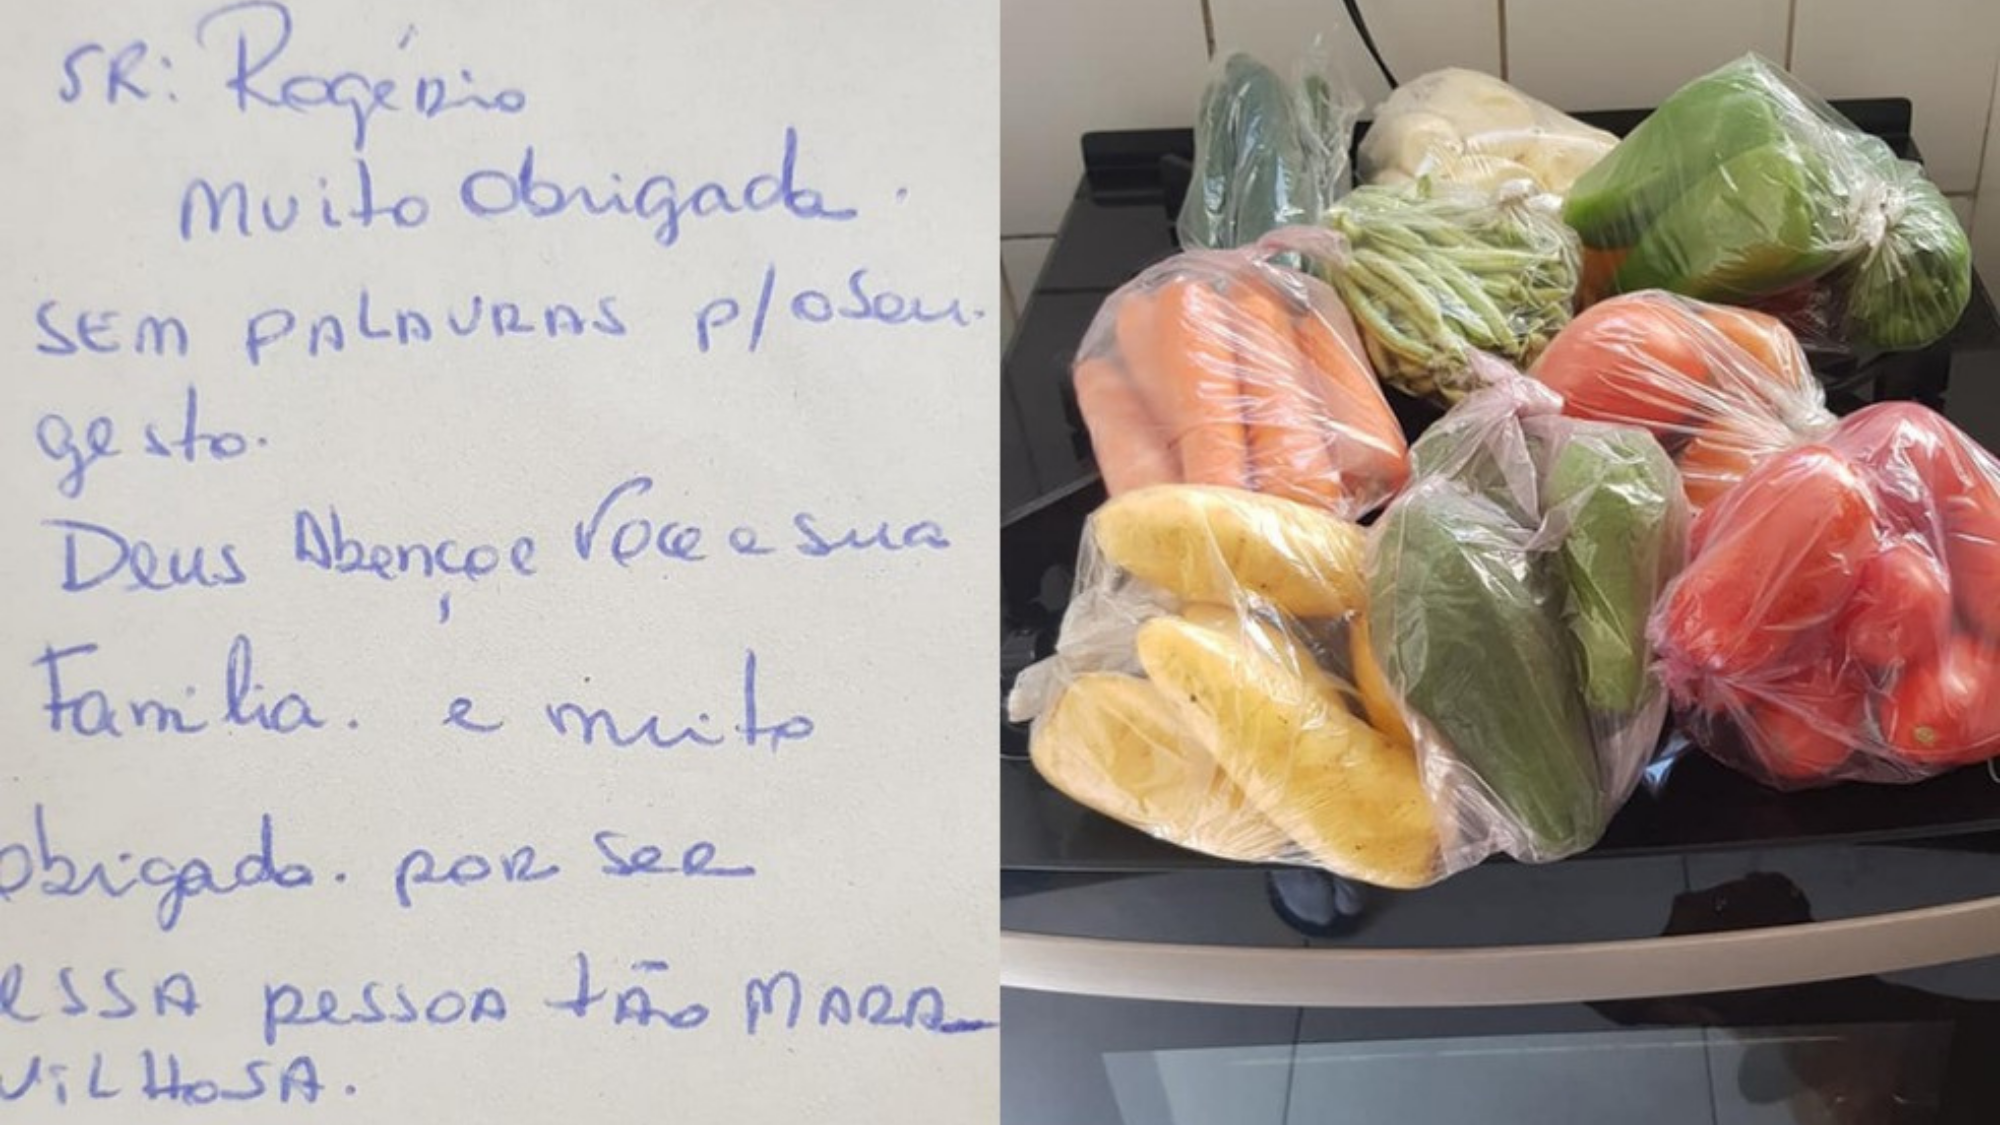 SR: Rogério
Muito Obrigada.
SEM PALAVRAS p/ o seu.
gesto.
Deus Abençoe Voce e sua
Familia. e muito
obrigada. por ser
essa pessoa tão MARA_
VILHOSA.